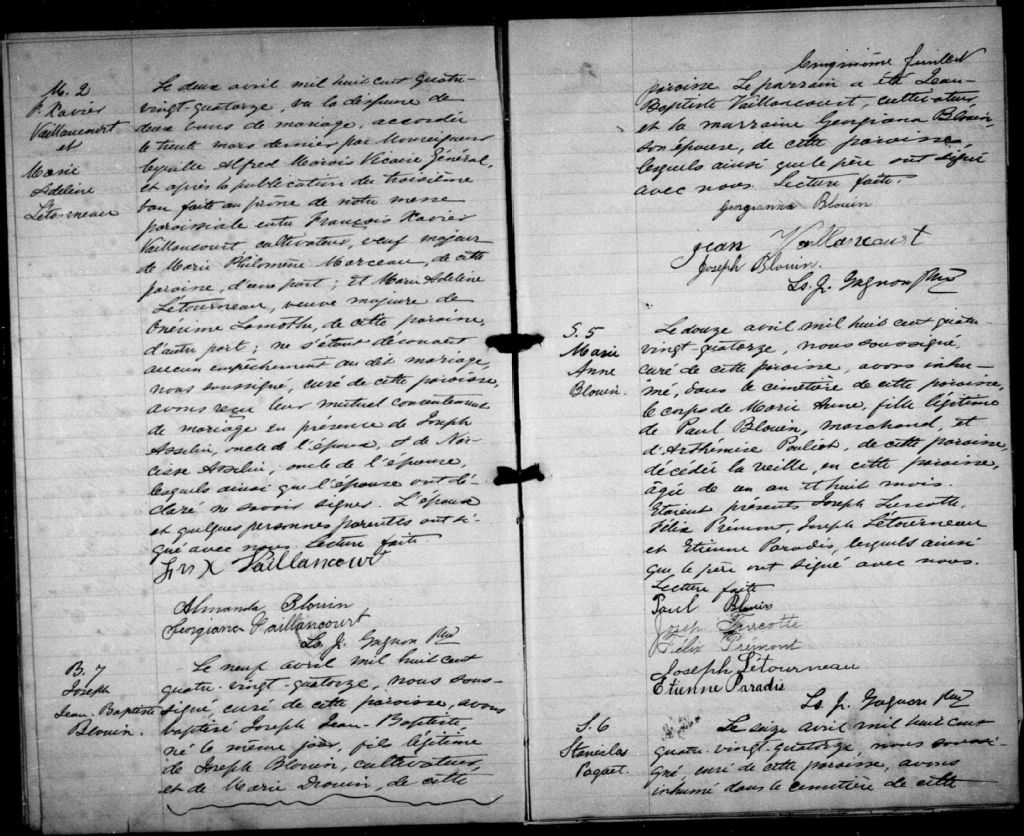 M. 2
F. Xavier
Vaillancourt
et
Marie
Adeline
Létourneau
Le deux avril mil huit cent quatre-
vingt-quatorze, vu la dispense de
deux bans de mariage, accordée
le trente mars dernier par Monseigneur
Cyrille Alfred Marois Vicaire Général,
et après la publication du troisième
ban faite au prône de notre messe
paroissiale entre François Xavier
Vaillancourt cultivateur, veuf majeur
de Marie Philomène Marceau, de cette
paroisse, d'une part; et Marie Adeline
Létourneau, veuve majeure de
Onésime Lamothe, de cette paroisse,
d'autre part; ne s'étant découvert
aucun empêchement au dit mariage,
nous soussigné, curé de cette paroisse,
avons reçu leur mutuel consentement
de mariage en présence de Joseph
Asselin, oncle de l'époux, et de Nar-
cisse Asselin, oncle de l'épouse,
lesquels ainsi que l'épouse ont dé-
claré ne savoir signer. L'époux
et quelques personnes parentes ont si-
gné avec nous. Lecture faite
Frs X Vaillancourt
Almanda Blouin
Georgiana Vaillancourt
Ls. J. Gagnon Ptre
B. 7
Joseph
Jean-Baptiste
Blouin.
Le neuf avril mil huit cent
quatre-vingt-quatorze, nous sous-
signé curé de cette paroisse, avons
baptisé Joseph Jean-Baptiste
né le même jour, fils légitime
de Joseph Blouin, cultivateur,
et de Marie Drouin, de cette
Cinquième feuillet
paroisse. Le parrain a été Jean-
Baptiste Vaillancourt, cultivateur,
et la marraine Georgiana Blouin,
son épouse, de cette paroisse,
lesquels ainsi que le père ont signé
avec nous. Lecture faite.
Georgianna Blouin
Jean Vaillancourt
Joseph Blouin.
Ls. J. Gagnon Ptre
S. 5
Marie
Anne
Blouin.
Le douze avril mil huit cent quatre-
vingt-quatorze, nous soussigné,
curé de cette paroisse, avons inhu-
mé, dans le cimetière de cette paroisse,
le corps de Marie Anne, fille légitime
de Paul Blouin, marchand, et
d'Arthémise Pouliot, de cette paroisse,
décédée la veille, en cette paroisse,
âgée de un an et huit mois.
Etaient présents Joseph Turcotte,
Félix Prémont, Joseph Létourneau
et Etienne Paradis, lesquels ainsi
que le père ont signé avec nous.
Lecture faite
Paul Blouin
Joseph Turcotte
Félix Prémont
Joseph Létourneau
Etienne Paradis
Ls. J. Gagnon Ptre
S. 6
Stanislas
Paquet.
Le seize avril mil huit cent
quatre-vingt-quatorze, nous soussi-
gné, curé de cette paroisse, avons
inhumé dans le cimetière de cette